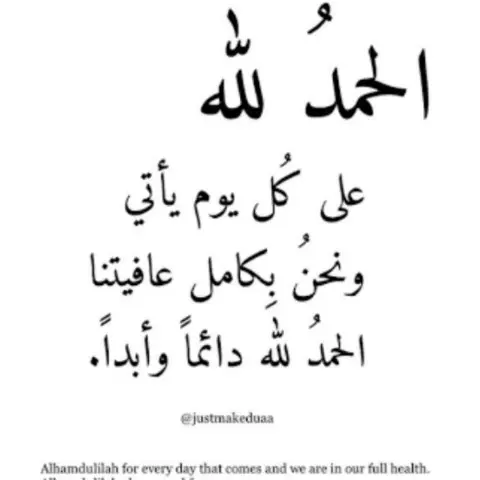 الحمدُ لله
على كُل يوم يأتي
ونحنُ بِكامل عافيتنا
الحمدُ لله دائماً وأبداً.
@justmakeduaa
Alhamdulilah for every day that comes and we are in our full health.